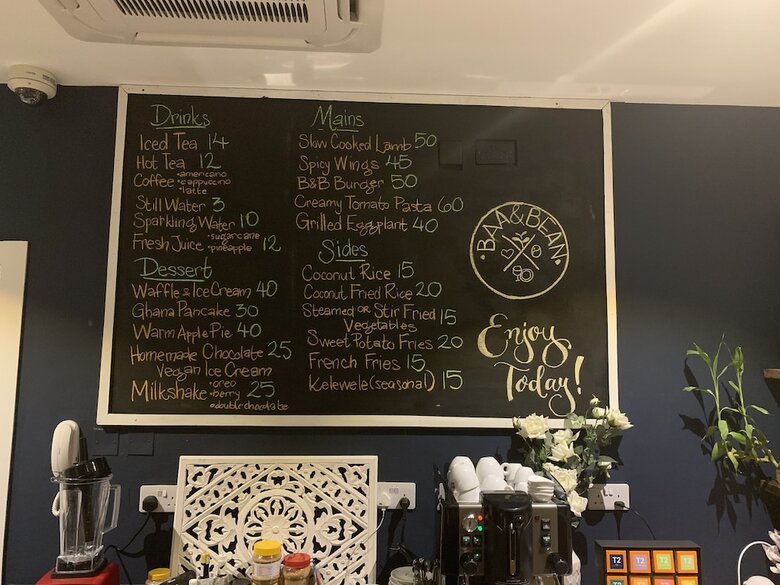 Drinks
Iced Tea 14
Hot Tea 12
Coffee •americano
•cappuccino
•latte
Still Water 3
Sparkling Water 10
Fresh Juice •sugarcane 12
•pineapple
Dessert
Waffle & Ice Cream 40
Ghana Pancake 30
Warm Apple Pie 40
Homemade Chocolate 25
Vegan Ice Cream
Milkshake •oreo 25
•berry
•double chocolate
Mains
Slow Cooked Lamb 50
Spicy Wings 45
B&B Burger 50
Creamy Tomato Pasta 60
Grilled Eggplant 40
Sides
Coconut Rice 15
Coconut Fried Rice 20
Steamed or Stir Fried 15
Vegetables
Sweet Potato Fries 20
French Fries 15
Kelewele (seasonal) 15
BAA&BEAN
Enjoy
Today!
T2 T2 T2 T2